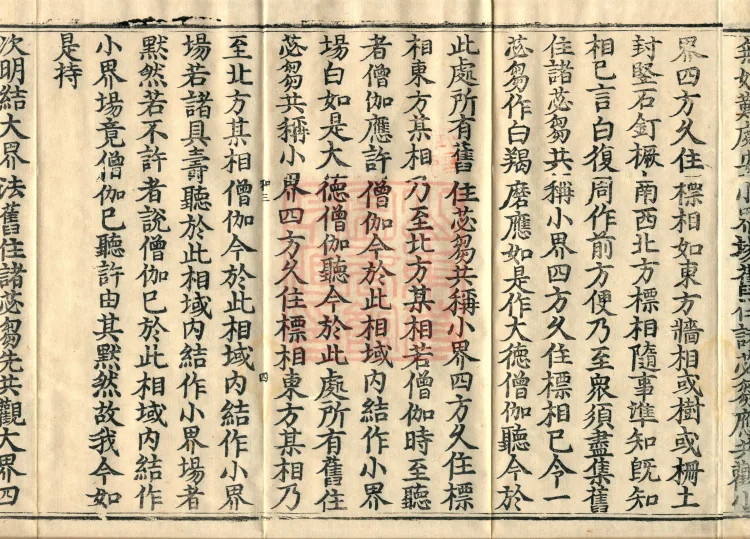 界四方久住標相如東方牆相或樹或柵土
封竪石釘橛南西北方標相隨事准知既知
相已言白復周作前方便乃至衆須盡集舊
住諸苾芻共稱小界四方久住標相已令一
苾芻作白羯磨應如是作大德僧伽聽今於
此處所有舊住苾芻共稱小界四方久住標
相東方某相乃至北方某相若僧伽時至聽
者僧伽應許僧伽今於此相域内結作小界
場白如是大德僧伽聽今於此處所有舊住
苾芻共稱小界四方久住標相東方某相乃
至北方某相僧伽今於此相域内結作小界
場若諸具壽聽於此相域内結作小界場者
默然若不許者說僧伽已於此相域内結作
小界場竟僧伽已聽許由其默然故我今如
是持
次明結大界法舊住諸苾芻先共觀大界四